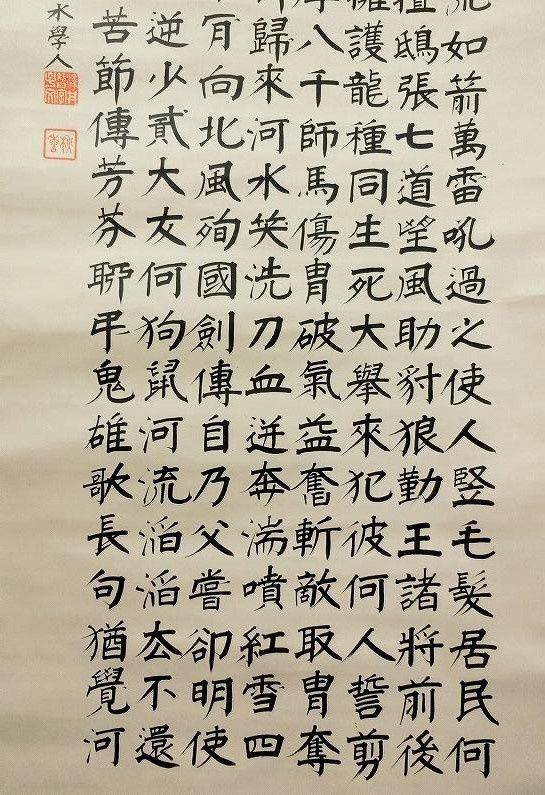 流如箭萬雷吼過之使人竪毛髮居民何
擅鴟張七道望風助豺狼勤王諸將前後
擁護龍種同生死大擧來犯彼何人誓剪
摩八千師馬傷冑破氣益奮斬敵取冑奪
歸來河水笑洗刀血迸奔湍噴紅雪四
肯向北風殉國劍傳自乃父嘗卻明使
逆少貳大友何狗鼠河流滔滔厺不還
苦節傳芳芬聊弔鬼雄歌長句猶覺河
水學人